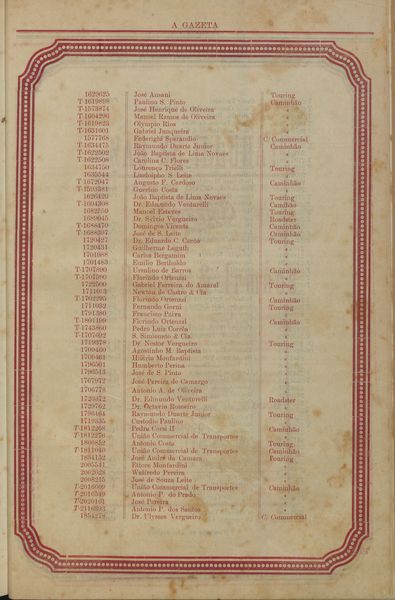 A GAZETA
1629625 José Ansani Touring
T-1619898 Paulino S. Pinto Caminhão
T-1573874 José Henrique de Oliveira "
T-1604296 Manoel Ramos de Oliveira "
T-1619823 Olympio Rios "
T-1631601 Gabriel Junqueira "
1577768 Federighi Sperandio C/ Commercial
T-1634475 Raymundo Duarte Junior Caminhão
T-1622502 João Baptista de Lima Novaes "
T-1622508 Carolina C. Flores "
1634750 Lourenço Trielli Touring
1635544 Lindolpho S. Leite "
T-1672047 Augusto P. Cardoso Caminhão
T-1593381 Guerino Costa "
1626420 João Baptista de Lima Novaes Touring
T-1604308 Dr. Eduardo Venturelli Caminhão
1682250 Manoel Esteves Touring
1689045 Dr. Sylvio Vergueiro Roadster
T-1688470 Domingos Vicente Caminhão
T-1688307 José de S. Leite "
1720427 Dr. Eduardo C. Canto Touring
1720431 Guilherme Leguth "
1701988 Carlos Bergamim "
1701483 Emilio Bertholdo "
T-1707890 Ursulino de Barros Caminhão
T-1707900 Florindo Ortenzzi "
1722500 Gabriel Ferreira do Amaral Touring
1711013 Newton de Castro & Cia. "
T-1702295 Florindo Ortenzzi Caminhão
1711032 Fernando Gorni Touring
1791380 Francisco Paiva "
T-1801109 Florindo Ortenzzi Caminhão
T-1743860 Pedro Luiz Corrêa "
T-1707692 S. Simionato & Cia. "
1719378 Dr. Nestor Vergueiro Touring
1709460 Agostinho M. Baptista "
1709461 Hilario Monfardini "
1796501 Humberto Perina "
1796513 José de S. Pinto "
1767972 José Pereira de Camargo "
1706778 Antonio A. de Oliveira "
1720372 Dr. Eduardo Venturelli Roadster
1729762 Dr. Octavio Romeiro "
1796464 Raymundo Duarte Junior Touring
1719335 Custodio Paulino "
T-1812268 Pedro Corsi II Caminhão
T-1812276 União Commercial de Transportes "
1806852 Antonio Costa Touring
T-1811040 União Commercial de Transportes Caminhão
1834132 José André da Camara Touring
2005541 Ettore Monfardini "
2002028 Walfredo Pereira "
2008215 José de Souza Leite "
T-2016009 União Commercial de Transportes Caminhão
T-2016549 Antonio P. do Prado "
T-2020161 José Pereira "
T-2116393 Antonio P. dos Santos "
1854278 Dr. Ulysses Vergueiro C/ Commercial